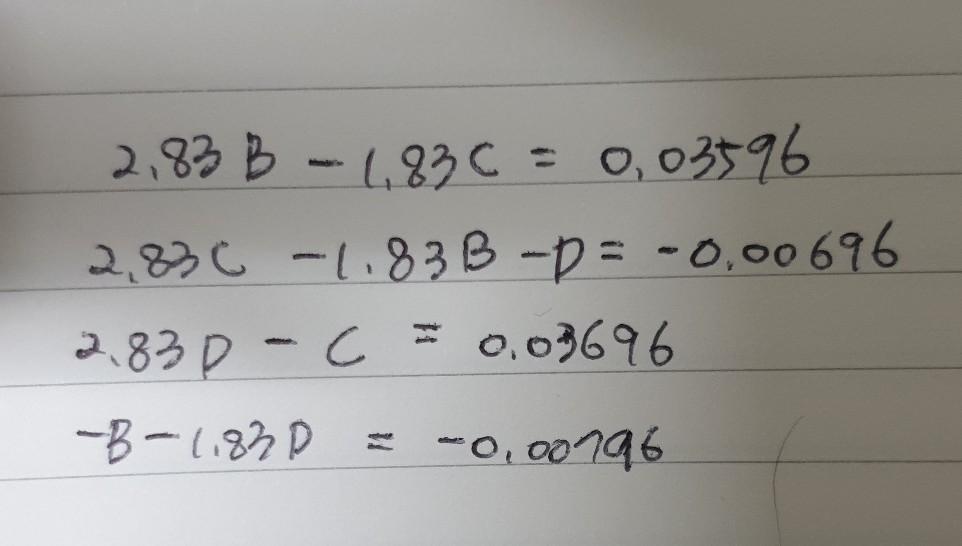 2.83B - 1.83C = 0.03596
2.83C - 1.83B - D = -0.00696
2.83D - C = 0.03696
-B - 1.83D = -0.00796